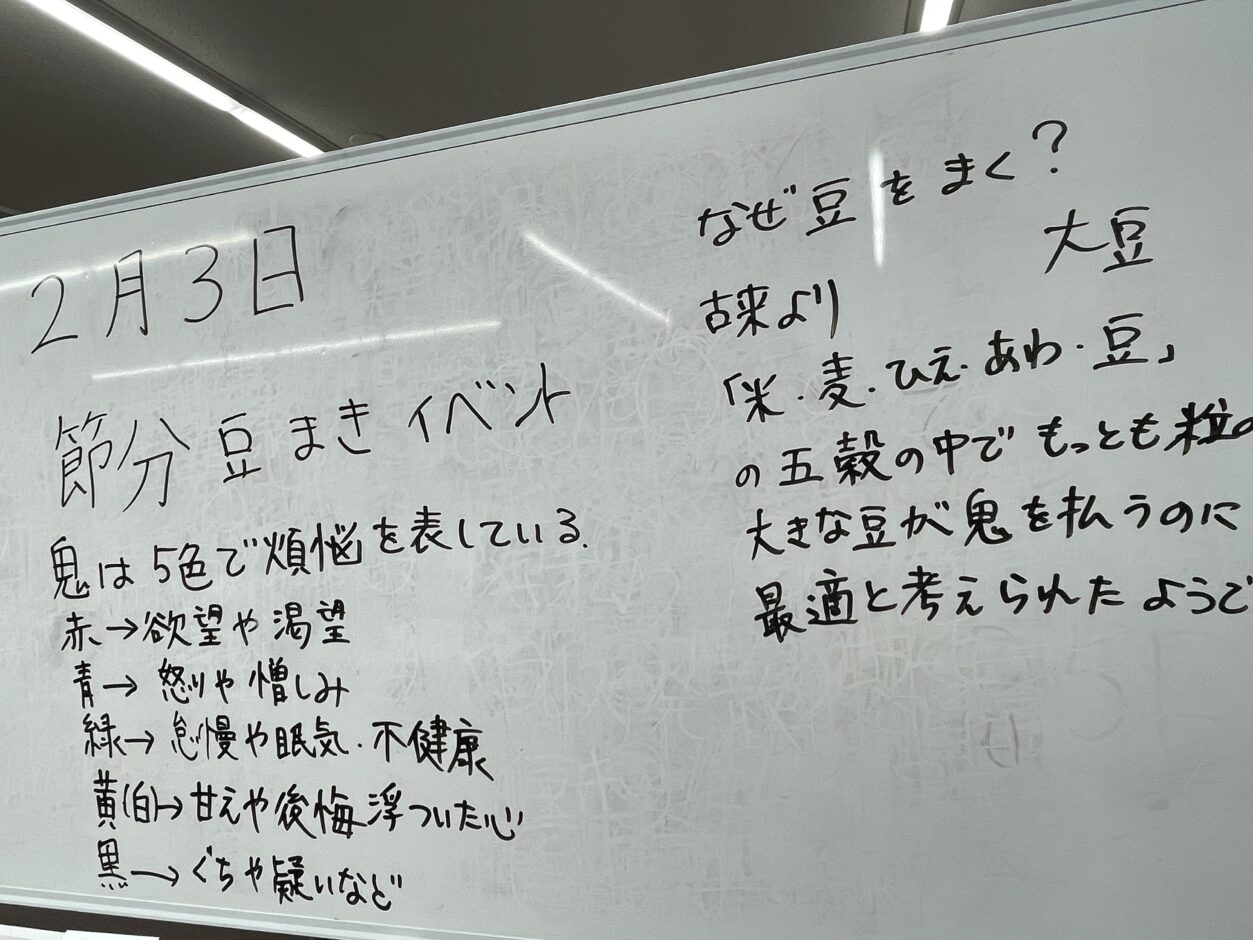 2月3日
節分 豆まきイベント
鬼は5色で煩悩を表している.
赤→欲望や渇望
青→怒りや憎しみ
緑→怠慢や眠気・不健康
黄(白)→甘えや後悔浮ついた心
黒→ぐちや疑いなど
なぜ豆をまく?
大豆
古来より
「米・麦・ひえ・あわ・豆」
の五穀の中でもっとも粒の
大きな豆が鬼を払うのに
最適と考えられたようで